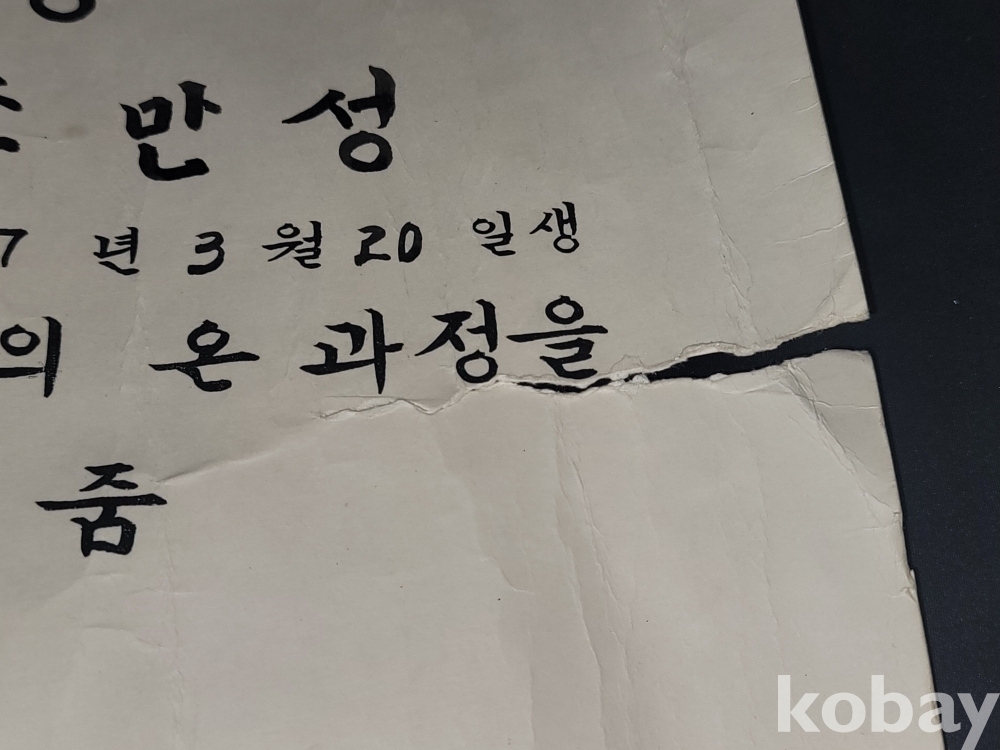 만 성
7 년 3 월 20 일생
의 온 과정을
줌
kobay